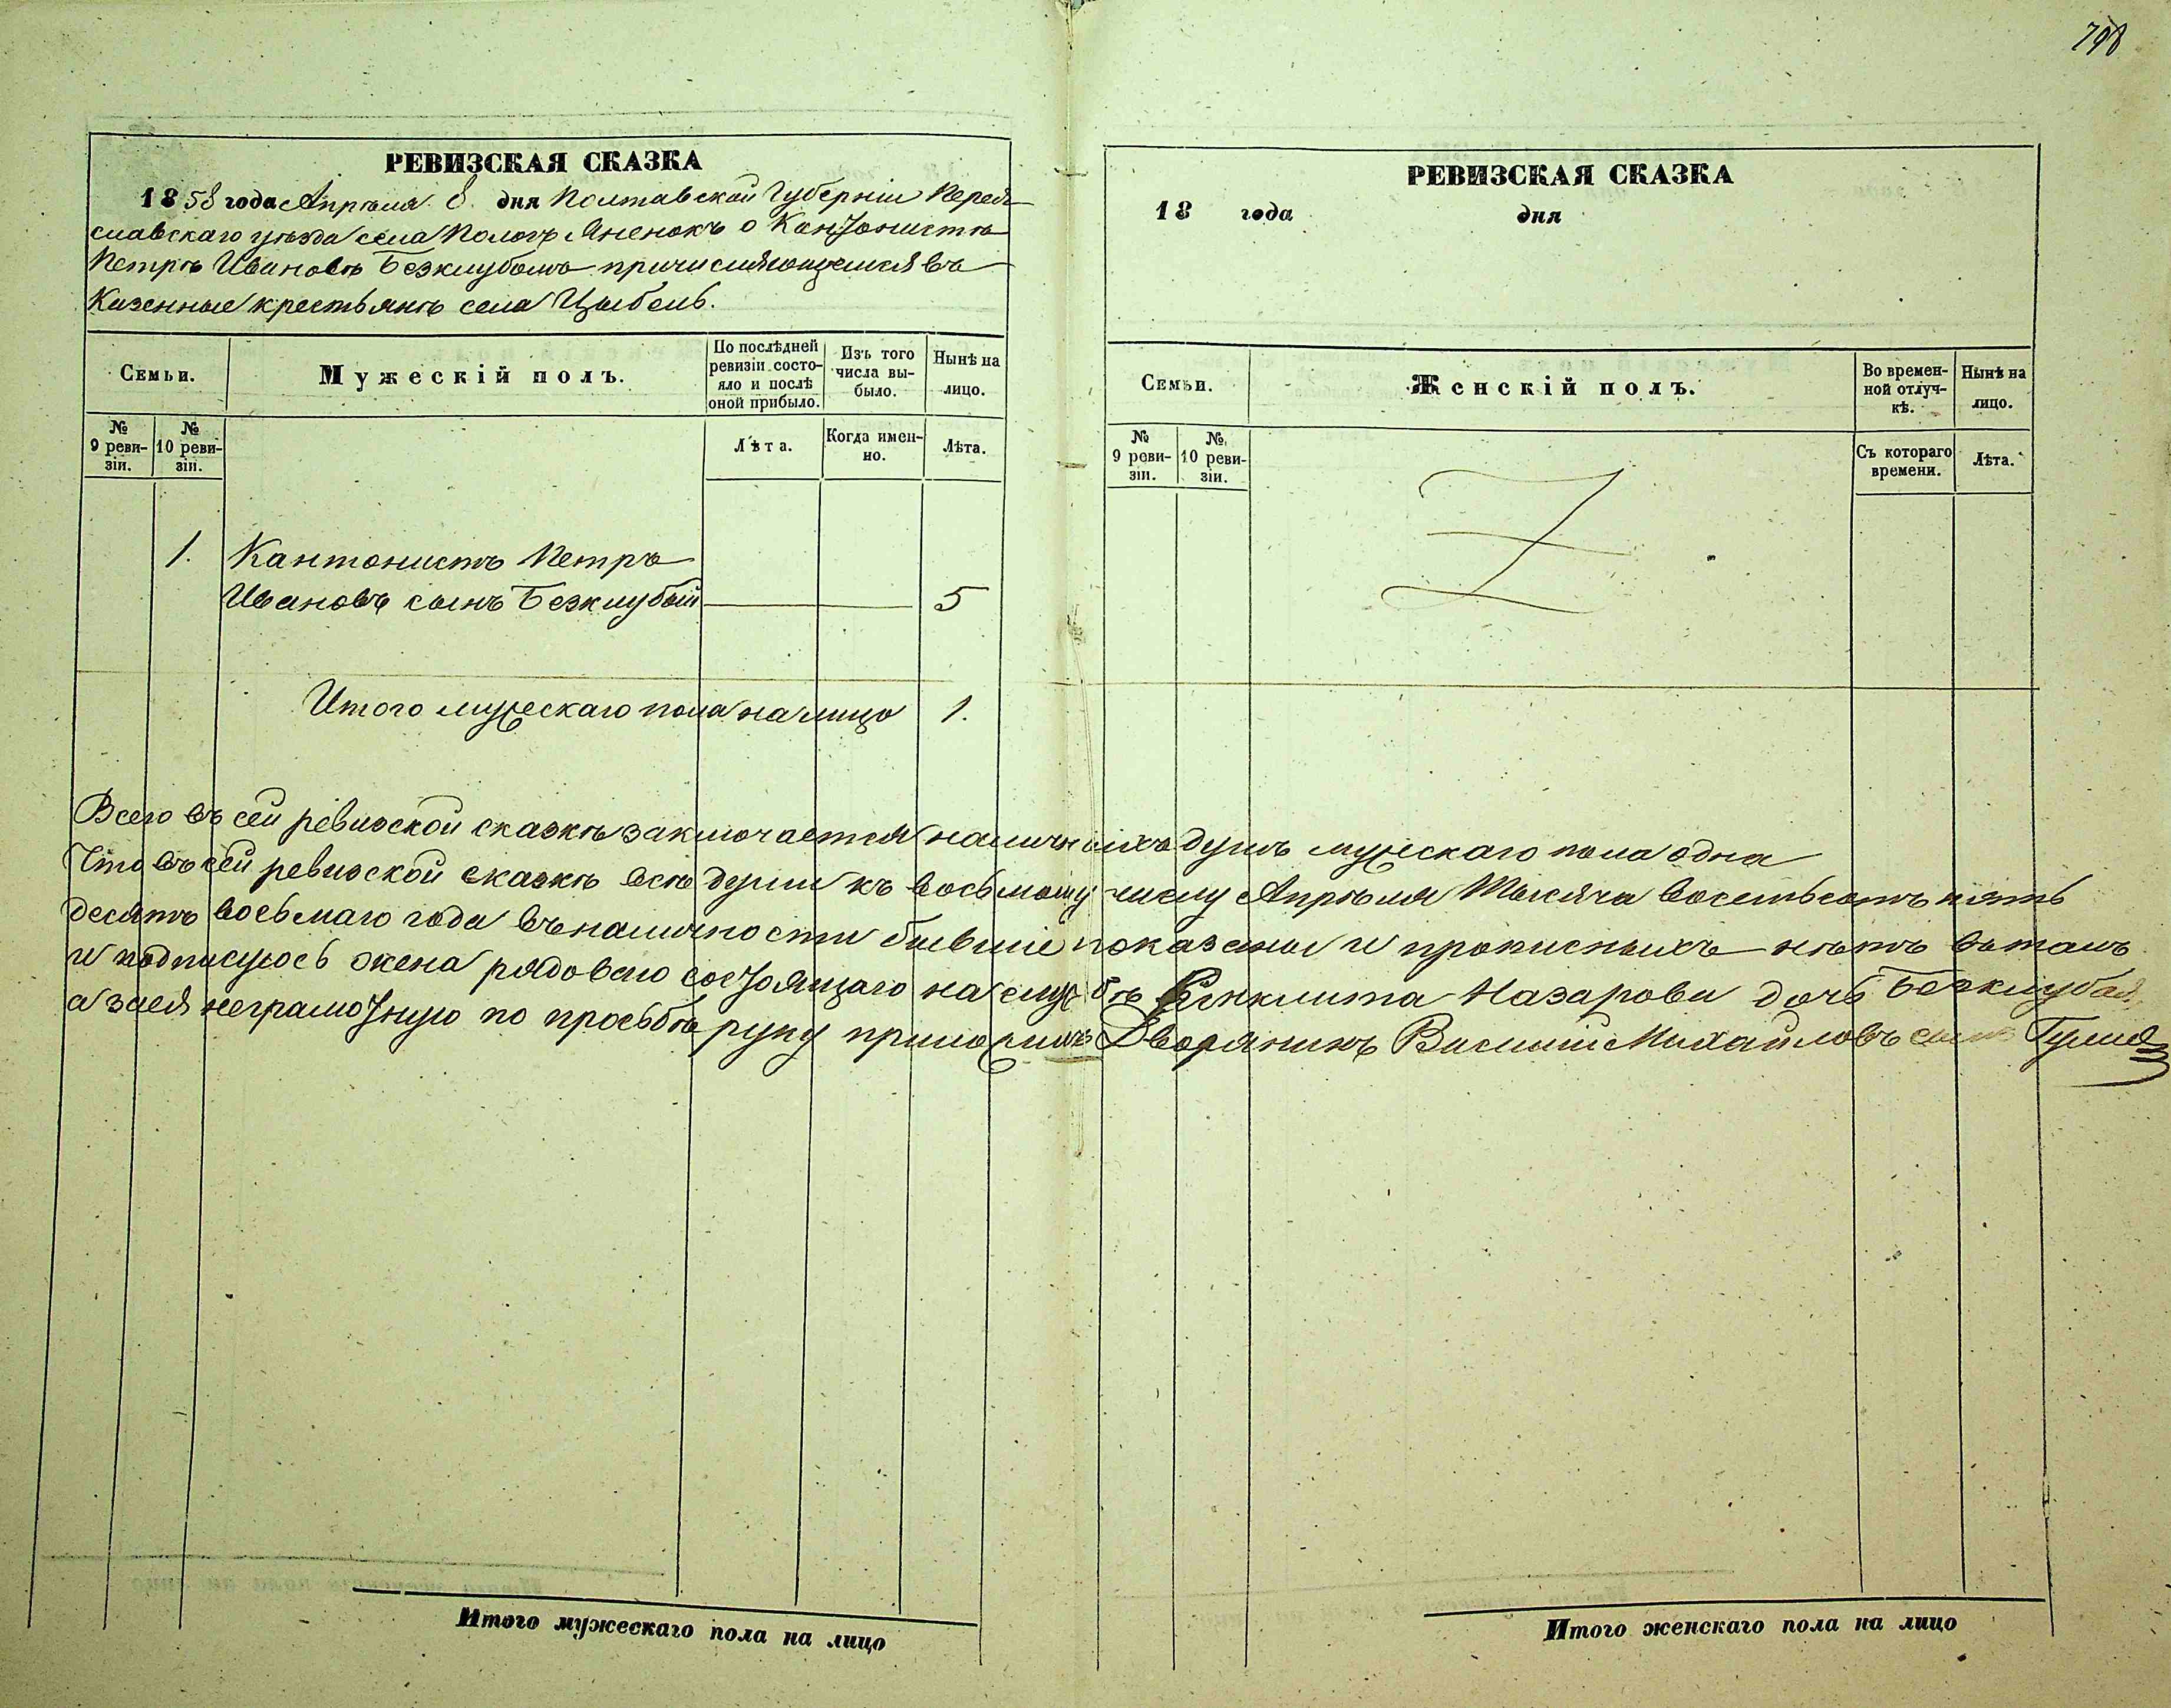 798
РЕВИЗСКАЯ СКАЗКА
1858 года Апрѣля 8 дня Полтавской Губерніи Перея-
славскаго уѣзда села Пологъ Яненокъ о Кантонистѣ
Петрѣ Ивановѣ Безклубомъ причисляющемся въ
Казенные крестьянъ села Цыбель.
Семьи.
Мужескій полъ.
По послѣдней ревизіи состо-яло и послѣ оной прибыло.
Изъ того числа вы-было.
Нынѣ на лицо.
№ 9 реви-зіи.
№ 10 реви-зіи.
Лѣта.
Когда имен-но.
Лѣта.
1. Кантонистъ Петръ
Ивановъ сынъ Безклубый 5
Итого мужескаго пола на лицо 1.
РЕВИЗСКАЯ СКАЗКА
18 года дня
Семьи.
Женскій полъ.
Во времен-ной отлуч-кѣ.
Нынѣ на лицо.
№ 9 реви-зіи.
№ 10 реви-зіи.
Съ котораго времени.
Лѣта.
Всего въ сей ревизской сказкѣ заключается наличныхъ душъ мужескаго пола одна
Что въ сей ревизской сказкѣ всѣ души къ восьмому числу Апрѣля Тысяча восемьсотъ пять
десятъ восьмаго года въ наличности бывшіе показаны и прописныхъ нѣтъ въ томъ
и подписуюсь жена рядоваго состоящаго на службѣ Назарова дочь Безклубая,
а за ея неграмотную по просьбѣ руку приложилъ Дворянинъ Василій Михайловъ сынъ
Итого мужескаго пола на лицо
Итого женскаго пола на лицо